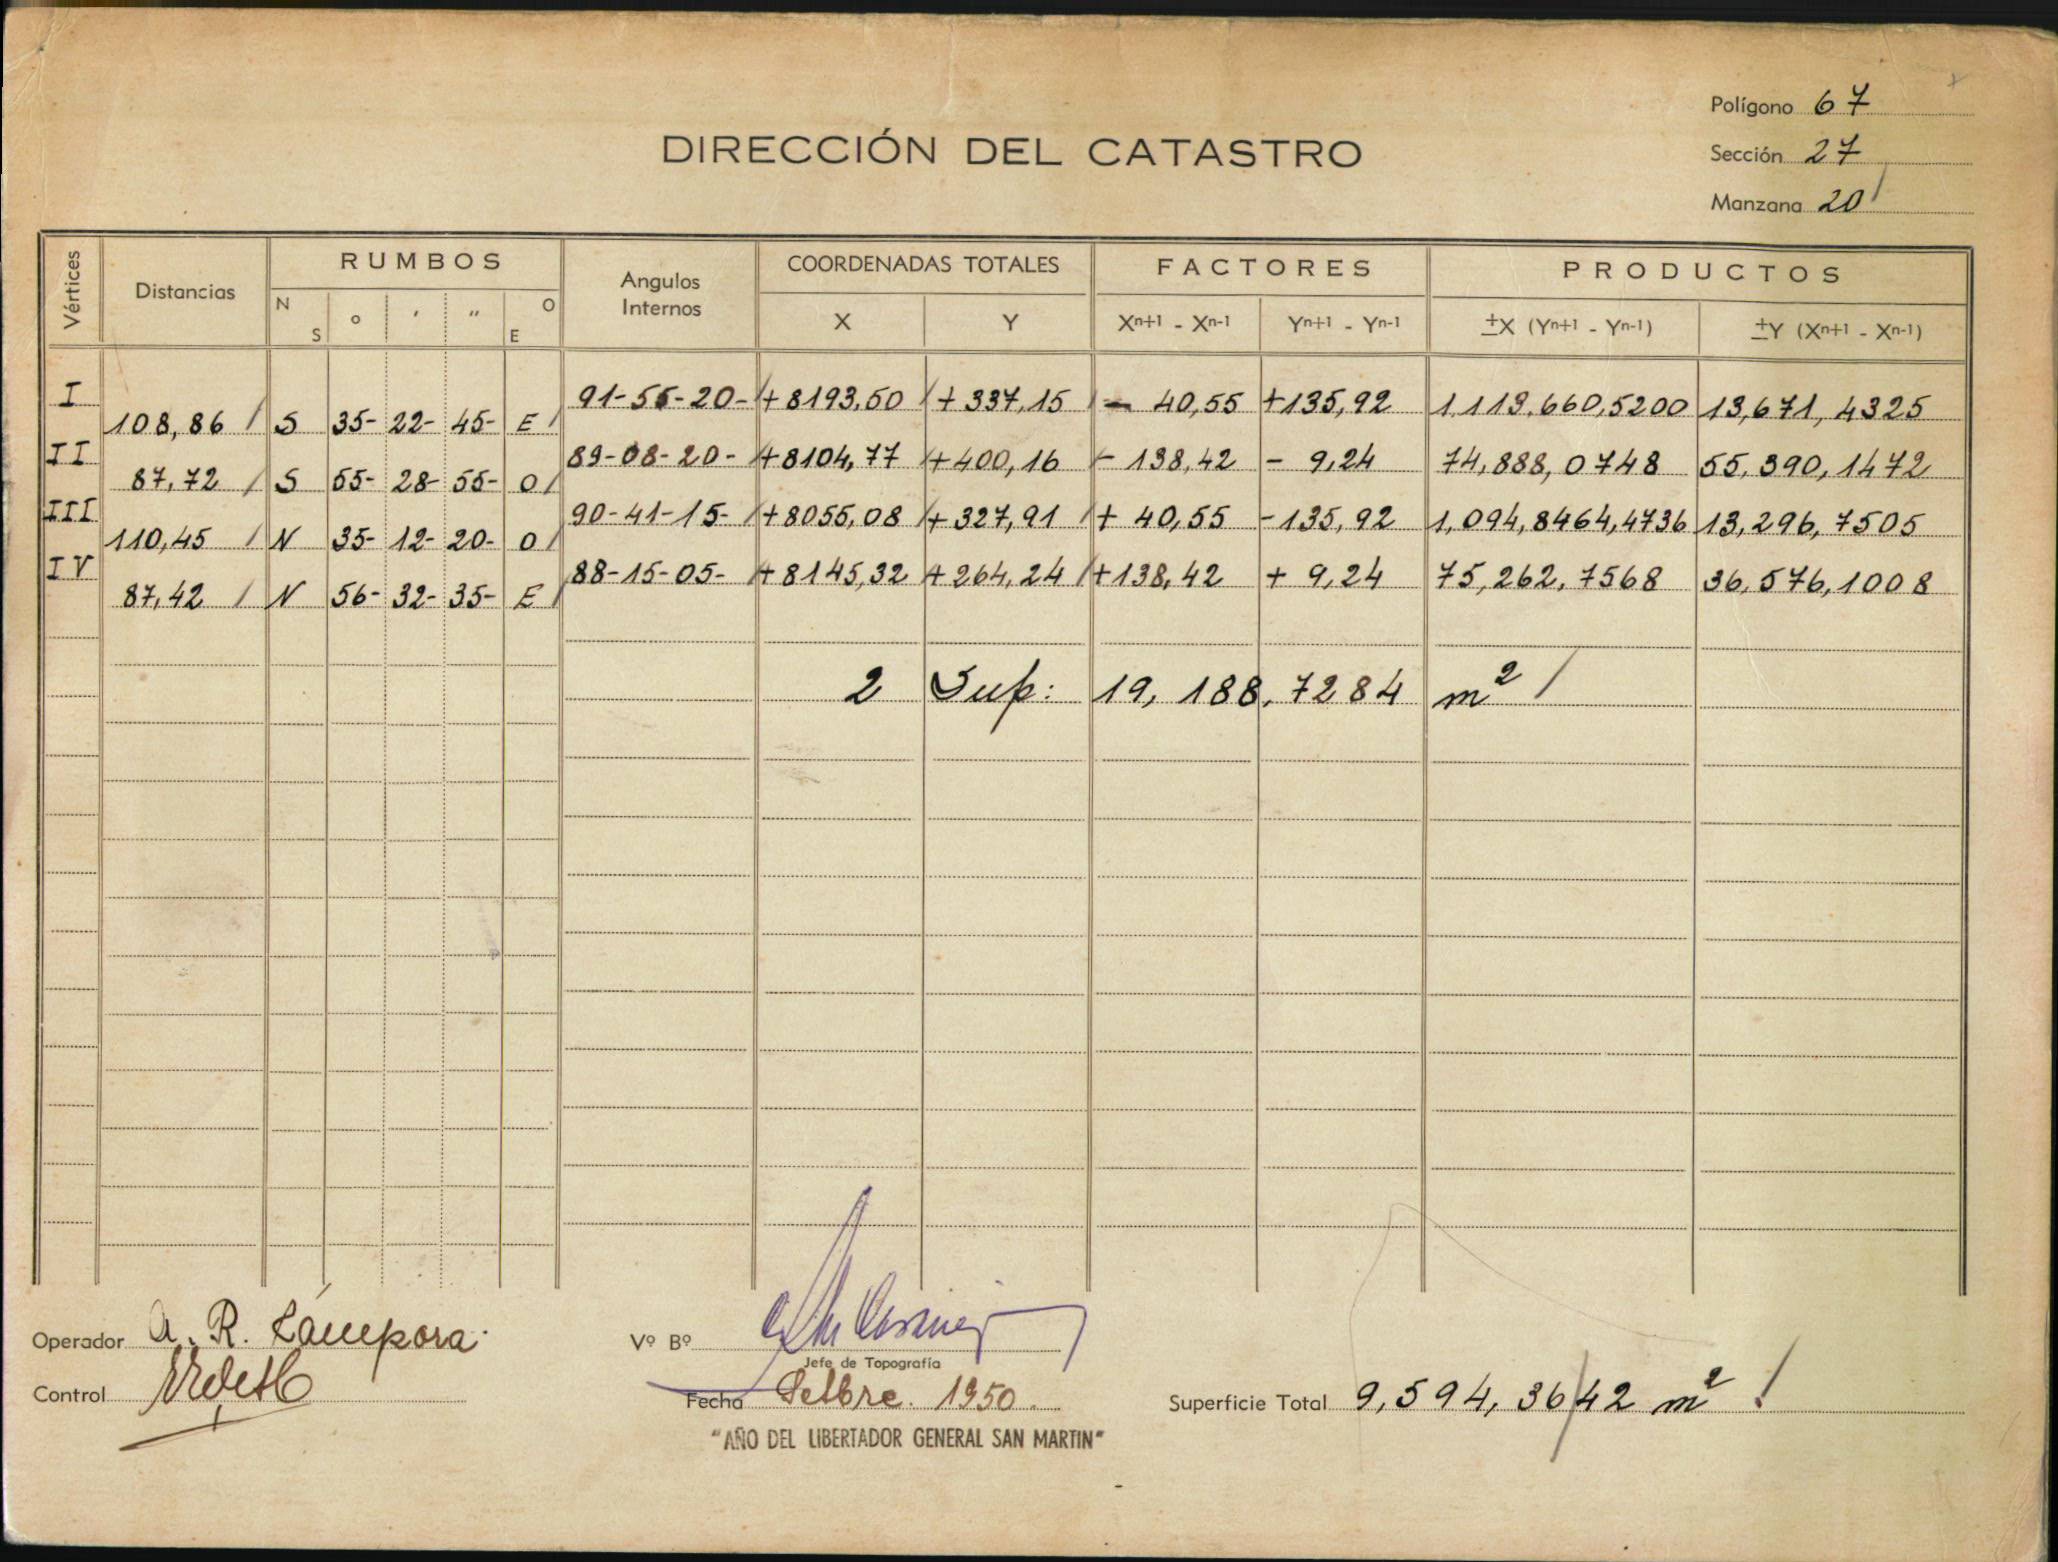 Polígono 67
DIRECCIÓN DEL CATASTRO
Sección 27
Manzana 20
Vértices Distancias RUMBOS Angulos Internos COORDENADAS TOTALES FACTORES PRODUCTOS
N S ° ' " O E X Y Xn+1 - Xn-1 Yn+1 - Yn-1 ±X (Yn+1 - Yn-1) ±Y (Xn+1 - Xn-1)
I 91-55-20- +8193,50 +337,15 - 40,55 +135,92 1,113,660,5200 13,671,4325
108,86 S 35- 22- 45- E
II 89-08-20- +8104,77 +400,16 - 138,42 - 9,24 74,888,0748 55,390,1472
87,72 S 55- 28- 55- O
III 90-41-15- +8055,08 +327,91 + 40,55 -135,92 1,094,8464,4736 13,296,7505
110,45 N 35- 12- 20- O
IV 88-15-05- +8145,32 +264,24 +138,42 + 9,24 75,262,7568 36,576,1008
87,42 N 56- 32- 35- E
2 Sup: 19,188,7284 m²
Operador A. R. Lámpora
Vº Bº
Jefe de Topografía
Control
Fecha Setbre. 1950.
Superficie Total 9,594,3642 m²
"AÑO DEL LIBERTADOR GENERAL SAN MARTIN"